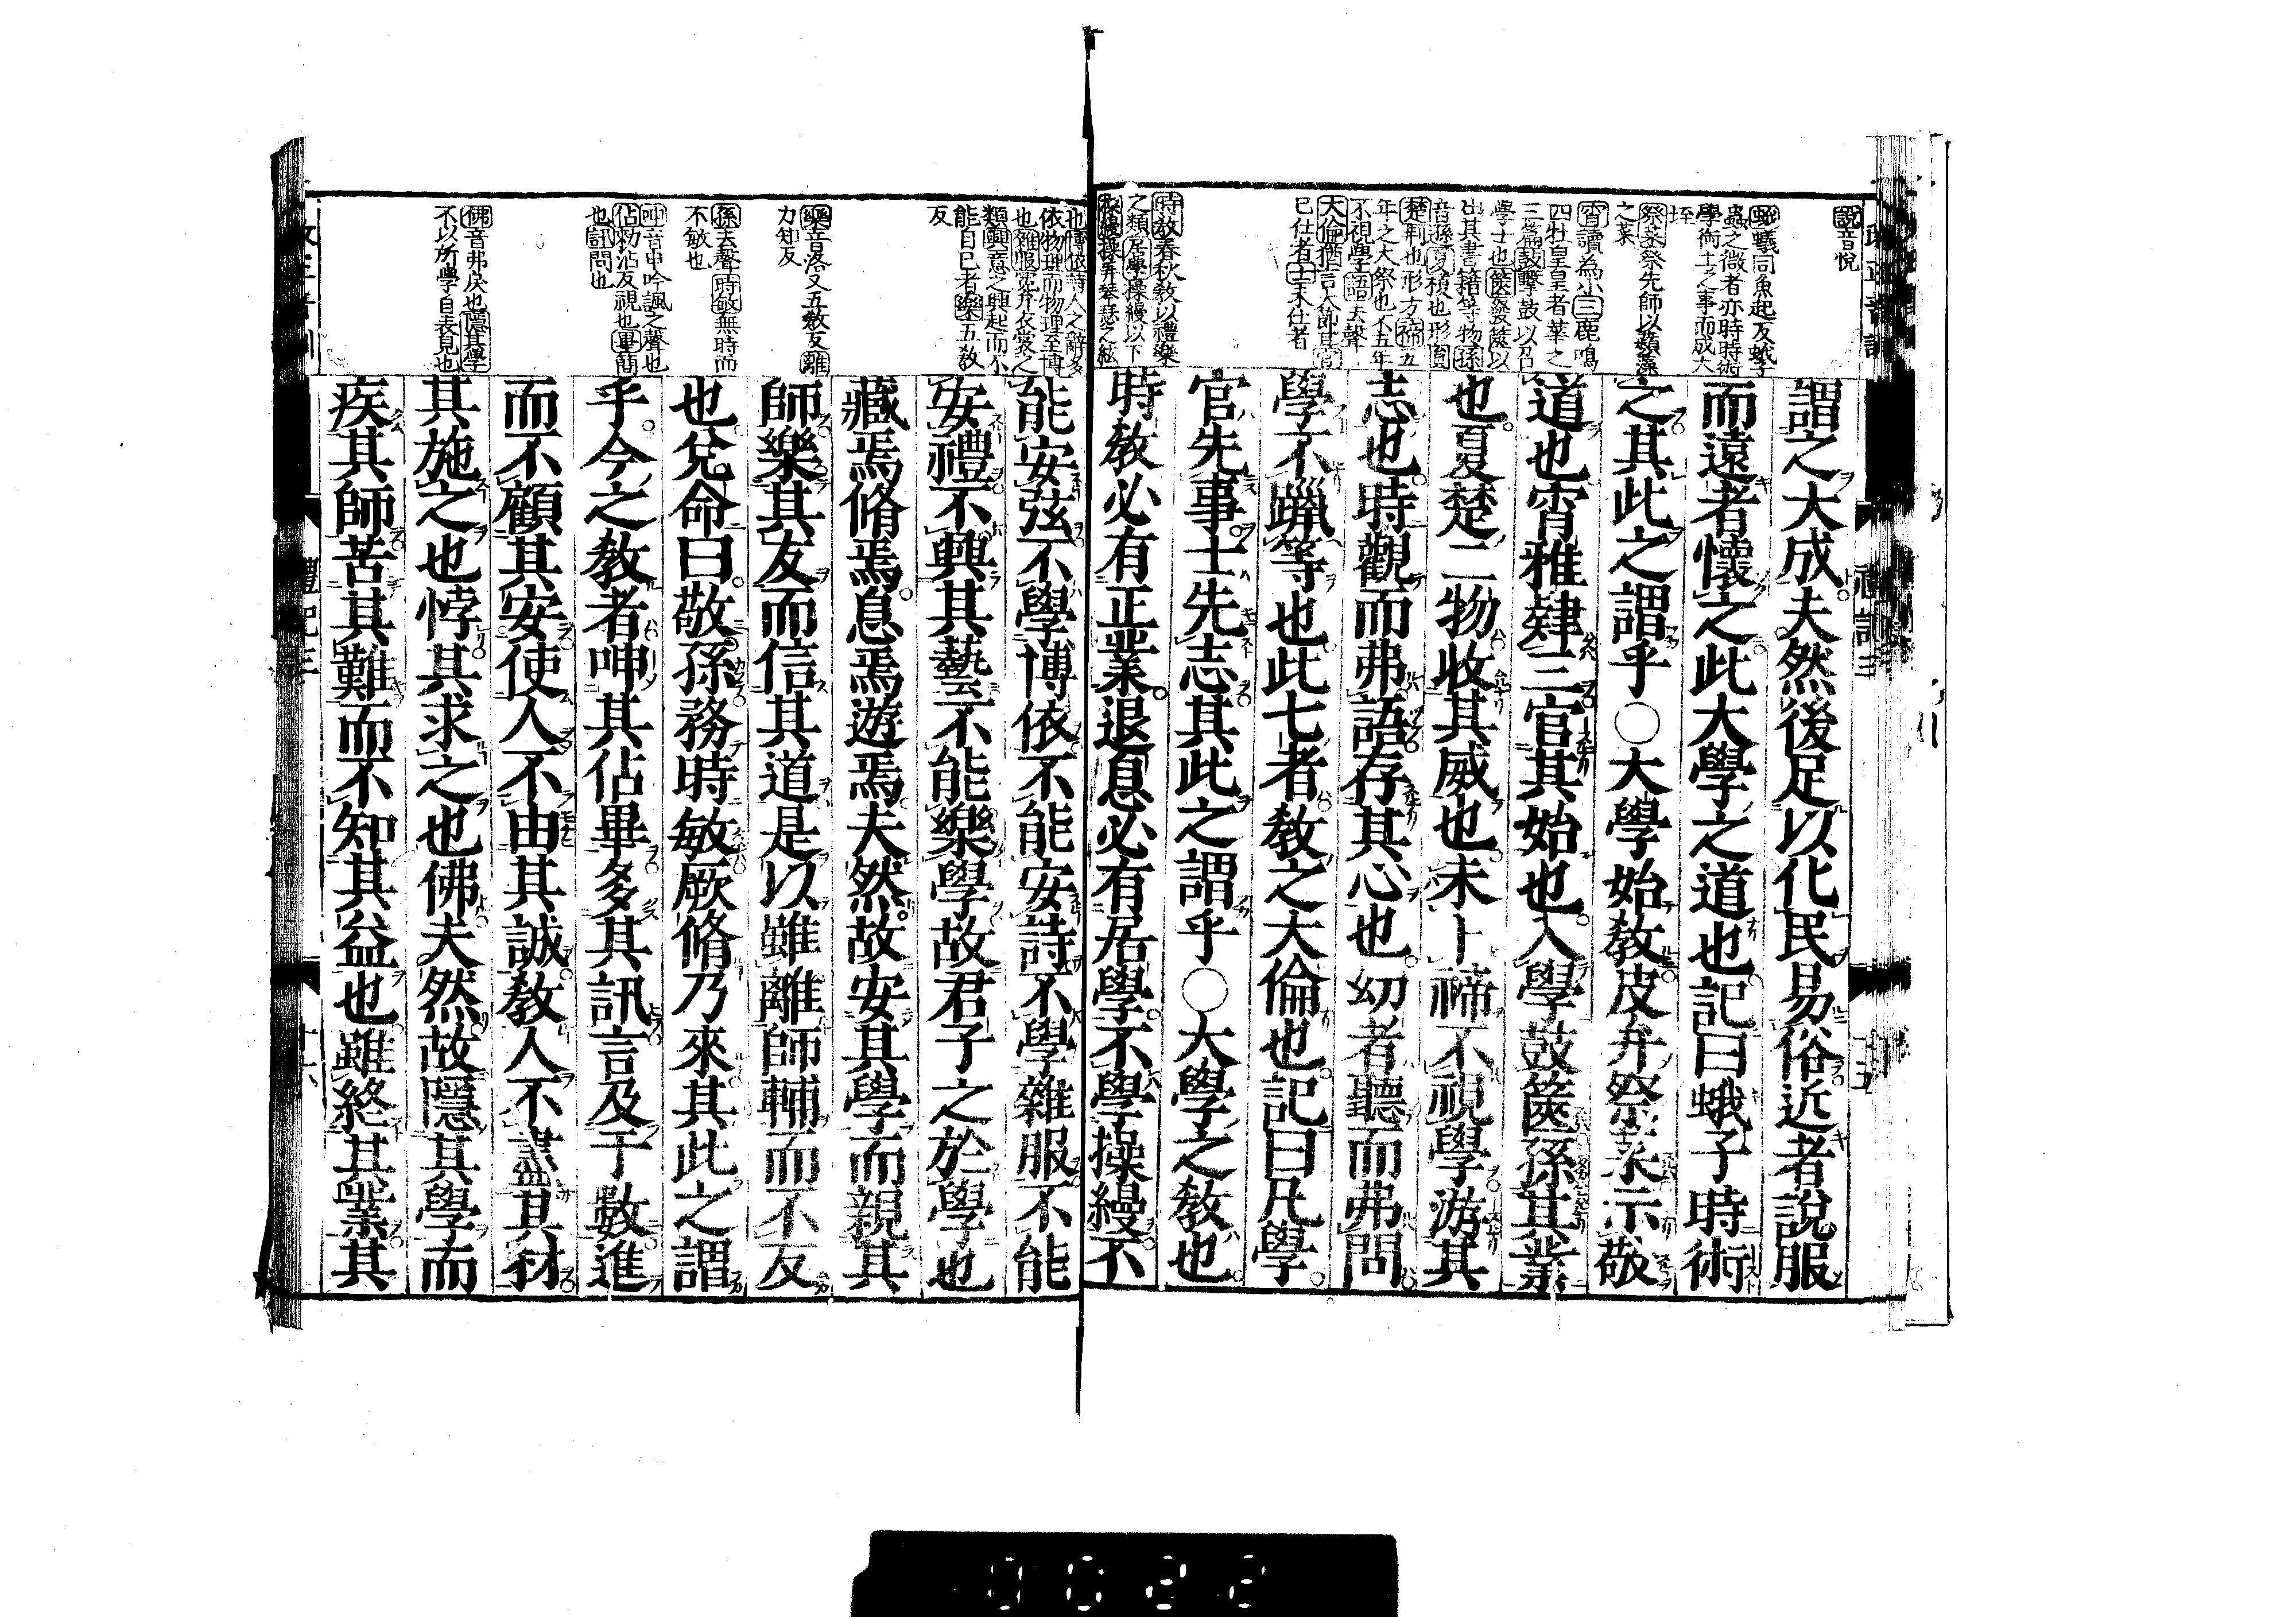 說音悅
蛾蟻同魚起反蛾子
蟲之微者亦時時術
學銜土之事而成大
垤
祭菜祭先師以蘋藻
之菜
宵讀為小三鹿鳴
四牡皇皇者華之
三篇鼓擊鼓以召
學士也篋發篋以
出其書籍等物孫
音孫夏榎也形圓
楚荊也形方禘五
年之大祭也不五年
不視學語去聲
大倫猶言大節其官
已仕者士未仕者
時教春秋教以禮樂
之類居學操縵以下
操縵操弄琴瑟之絃
謂之大成夫然後足以化民易俗近者說服
而遠者懷之此大學之道也記曰蛾子時術
之其此之謂乎○大學始教皮弁祭菜示敬
道也宵雅肄三官其始也入學鼓篋孫其業
也夏楚二物收其威也未卜禘不視學游其
志也時觀而弗語存其心也幼者聽而弗問
學不躐等也此七者教之大倫也記曰凡學
官先事士先志其此之謂乎○大學之教也
時教必有正業退息必有居學不學操縵不
也博依詩人之辭多
依物理而物理至博
也雜服冕弁衣裳之
類興意之興起而不
能自已者樂五教
反
樂音洛又五教反離
力知反
孫去聲時敏無時而
不敏也
呻音申吟諷之聲也
佔敕沾反視也畢簡
也訊問也
佛音弗戾也隱其學
不以所學自表見也
能安弦不學博依不能安詩不學雜服不能
安禮不興其藝不能樂學故君子之於學也
藏焉脩焉息焉遊焉夫然故安其學而親其
師樂其友而信其道是以雖離師輔而不反
也兌命曰敬孫務時敏厥脩乃來其此之謂
乎今之教者呻其佔畢多其訊言及于數進
而不顧其安使人不由其誠教人不盡其材
其施之也悖其求之也佛夫然故隱其學而
疾其師苦其難而不知其益也雖終其業其
禮記三
十六
0022